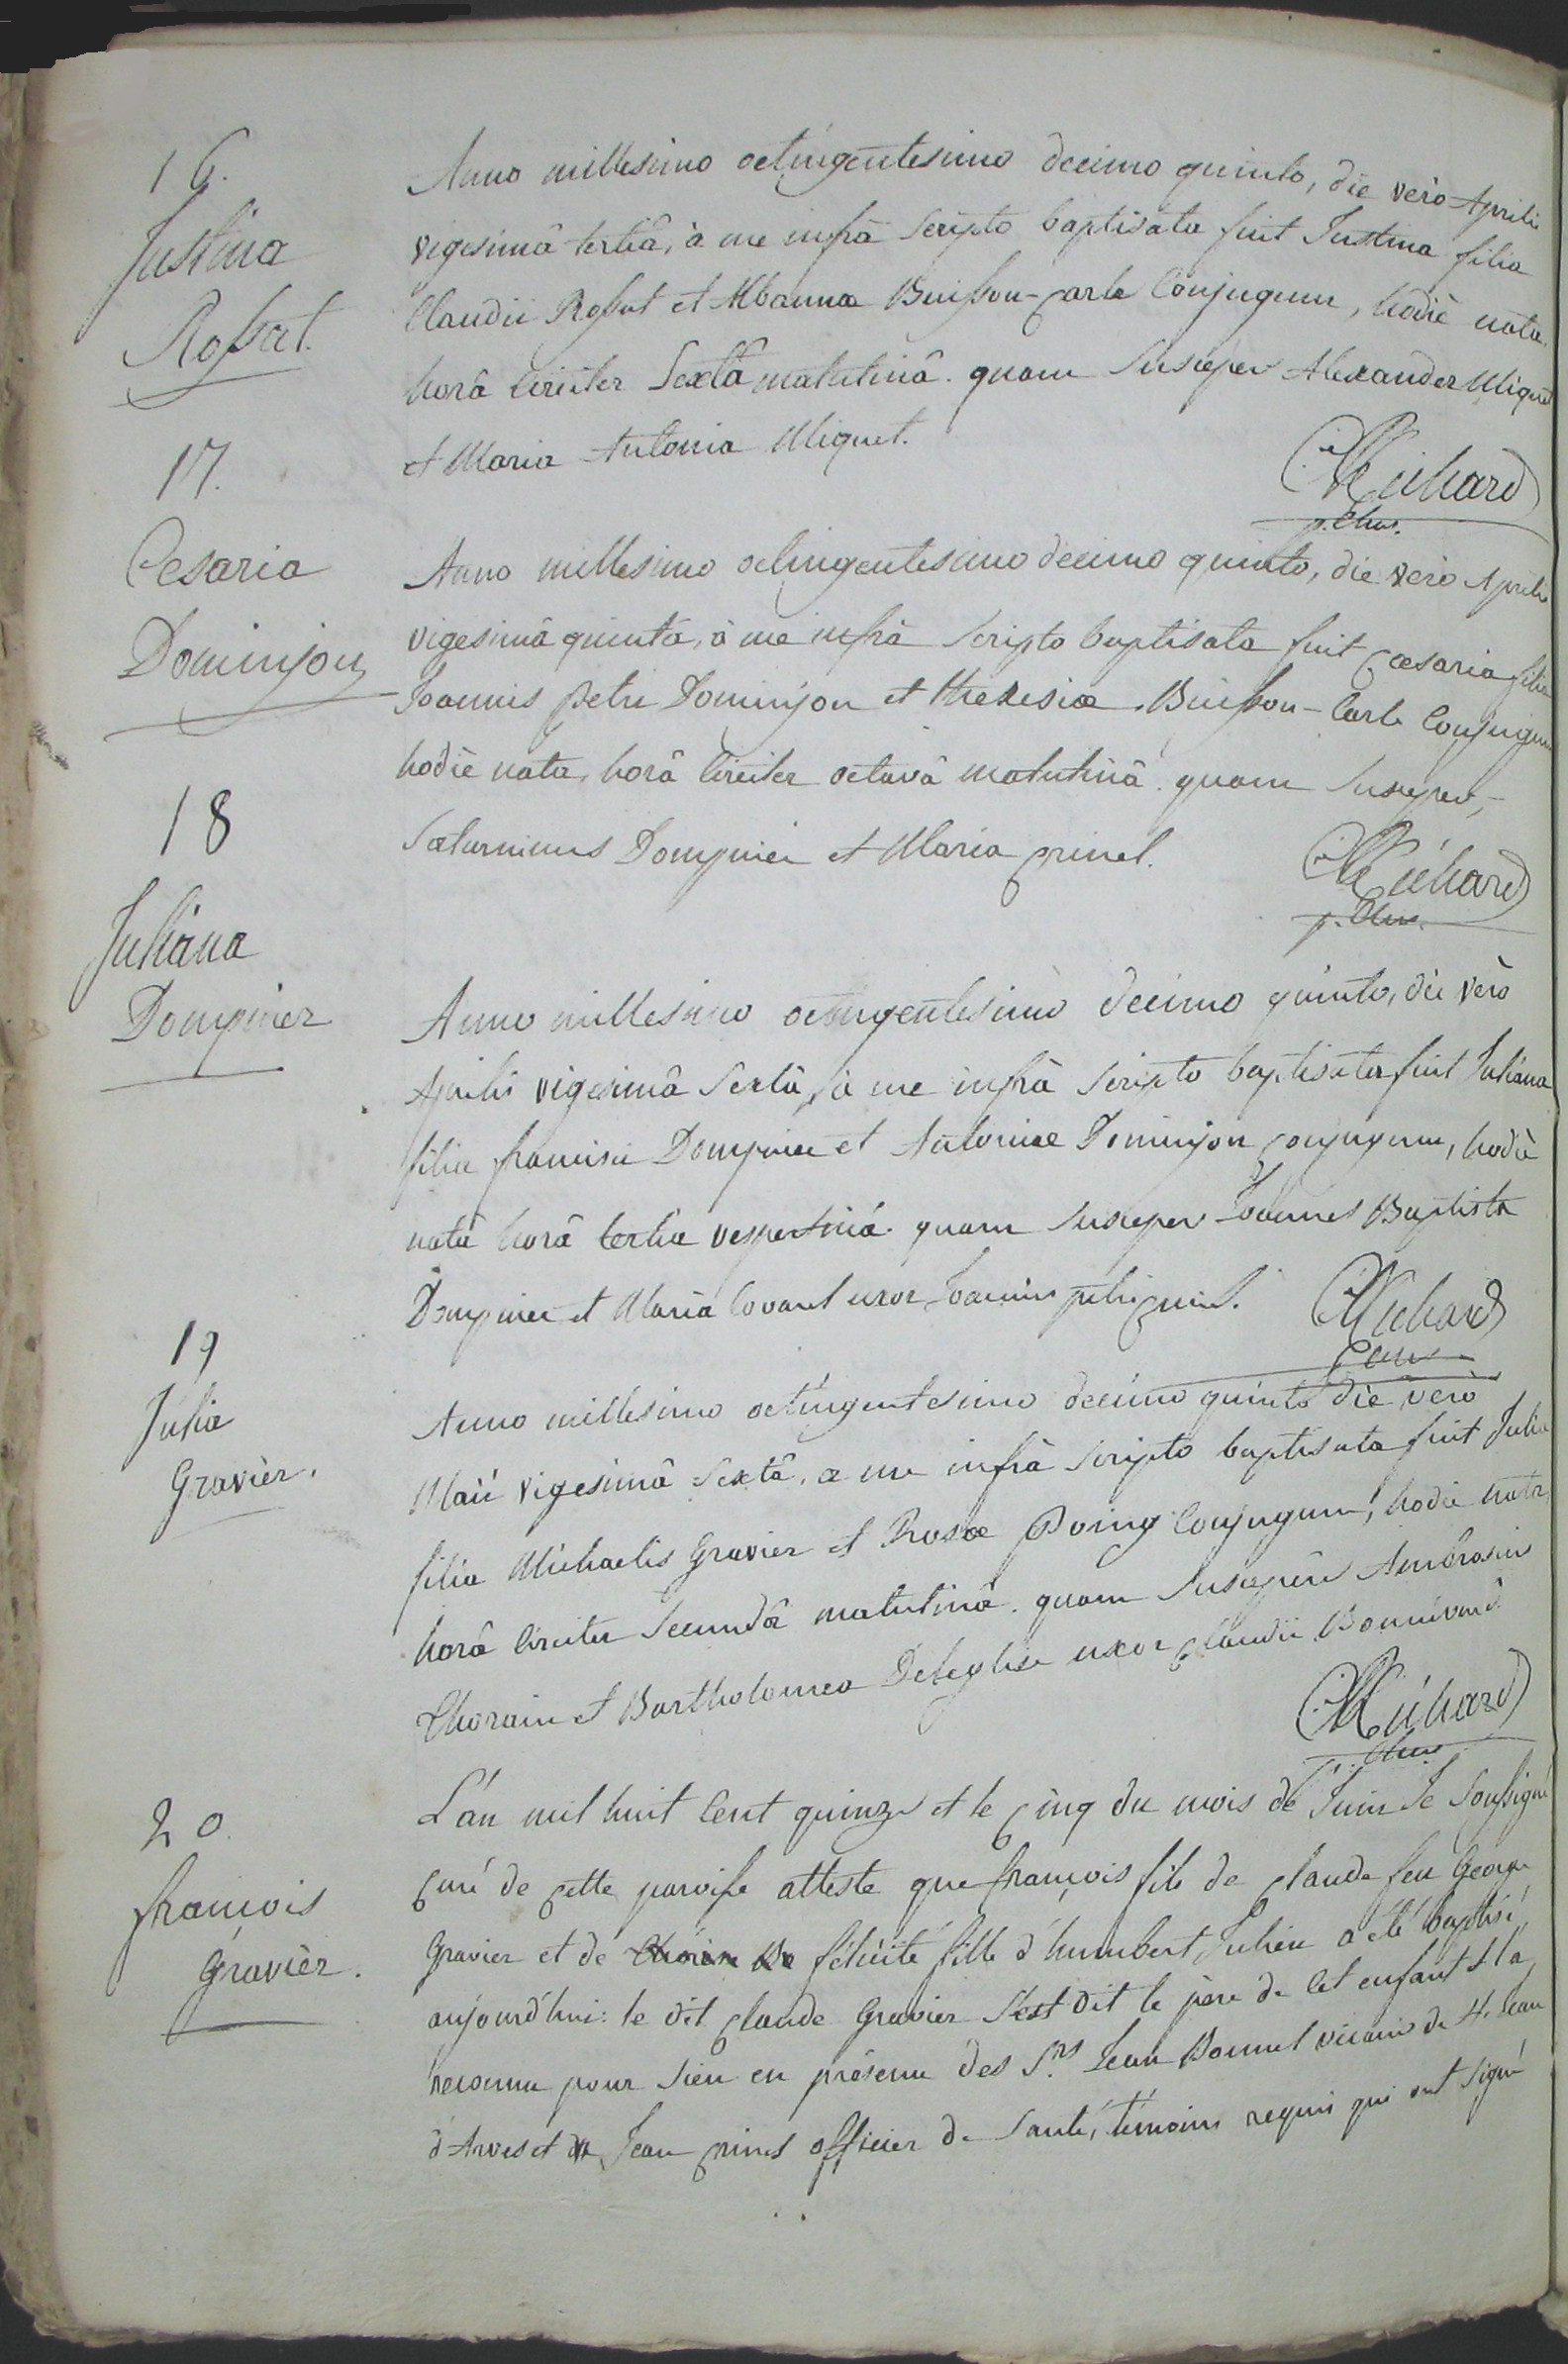 16.
Justina
Rossat.
Anno millesimo octingentesimo decimo quinto, die verò Aprilis
vigesimâ tertiâ, à me infrà scripto baptisata fuit Justina filia
Claudii Rossat et Albanna Buisson-Carle Conjugum, hodiè nata
horâ circiter sextâ matutinâ. quam suscepere Alexander Miquet
et Maria Antonia Miquet.
Richard
17.
Cesaria
Dominjon
Anno millesimo octingentesimo decimo quinto, die verò Aprilis
vigesimâ quintâ, à me infrà scripto baptisata fuit Caesaria filia
Joannis petri Dominjon et theresiae Buisson-Carle Conjugum
hodiè nata, horâ circiter octavâ matutinâ. quam suscepere,
Saturninus Dompnier et Maria
Richard
18
Juliana
Dompnier
Anno millesimo octingentesimo decimo quinto, die verò
Aprilis vigesimâ sextâ, à me infrà scripto baptisata fuit Juliana
filia francisci Dompnier et Antoniae Dominjon conjugum, hodiè
nata horâ tertia vespertinâ. quam suscepere Joannes Baptista
Dompnier et Maria uxor Joannis petri
Richard
19
Julia
Gravièr.
Anno millesimo octingentesimo decimo quinto die verò
Maii vigesimâ sextâ, a me infrà scripto baptisata fuit Julia
filia Michaelis Gravier et Rosae Conjugum, hodie nata
horâ circiter secundâ matutinâ. quam suscepêre Ambrosius
et Bartholomea Deleglise uxor claudii Bonnivard.
Richard
20.
francois
Gravièr.
L'an mil huit cent quinze et le cinq du mois de Juin Je soussigné
curé de cette paroisse atteste que françois fils de claude feu George
Gravier et de félicité fille d'humbert Julien a été baptisé
aujourd'hui: le dit claude Gravier s'est dit le père de cet enfant et l'a
reconnu pour sien en présence des S.rs Jean Bonnel vicaire de St. Jean
d'Arves et Jean officier de santé, témoins requis qui ont signé